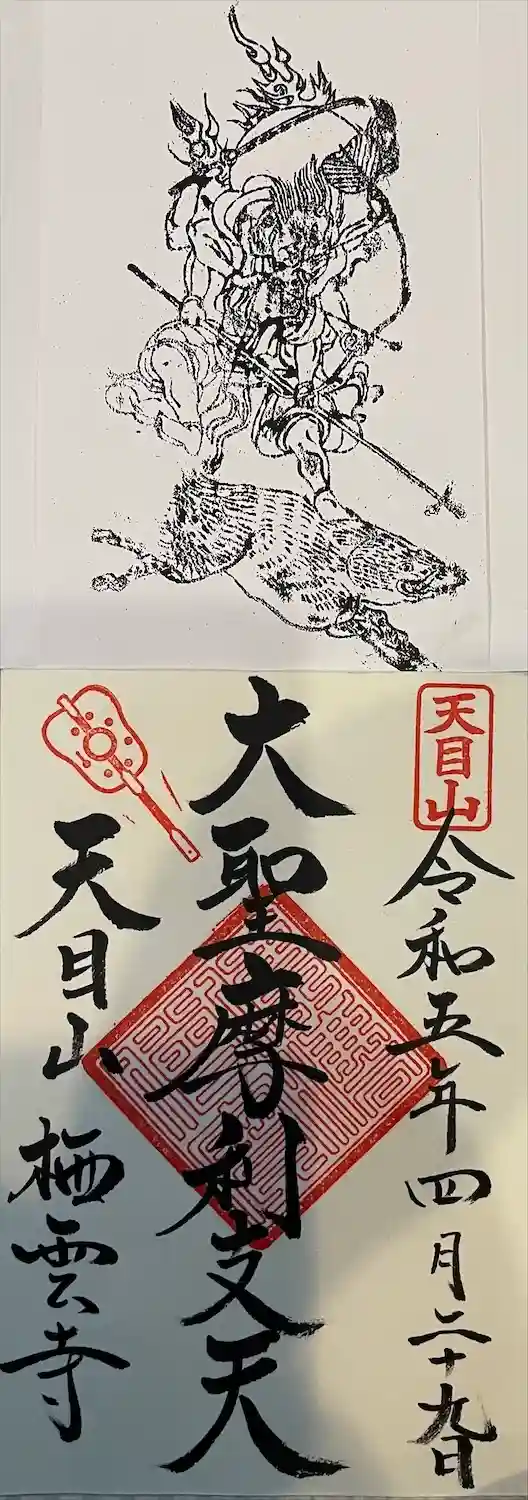 天目山
令和五年四月二十九日
大聖摩利支天
天目山 栖雲寺